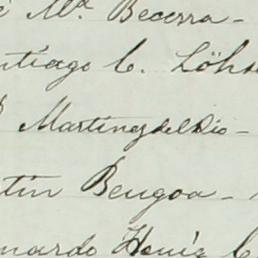 é Mª. Becerra -
ntiago C. Löhs
Martinez del Rio -
tin Bengoa -
nardo Hönig C.